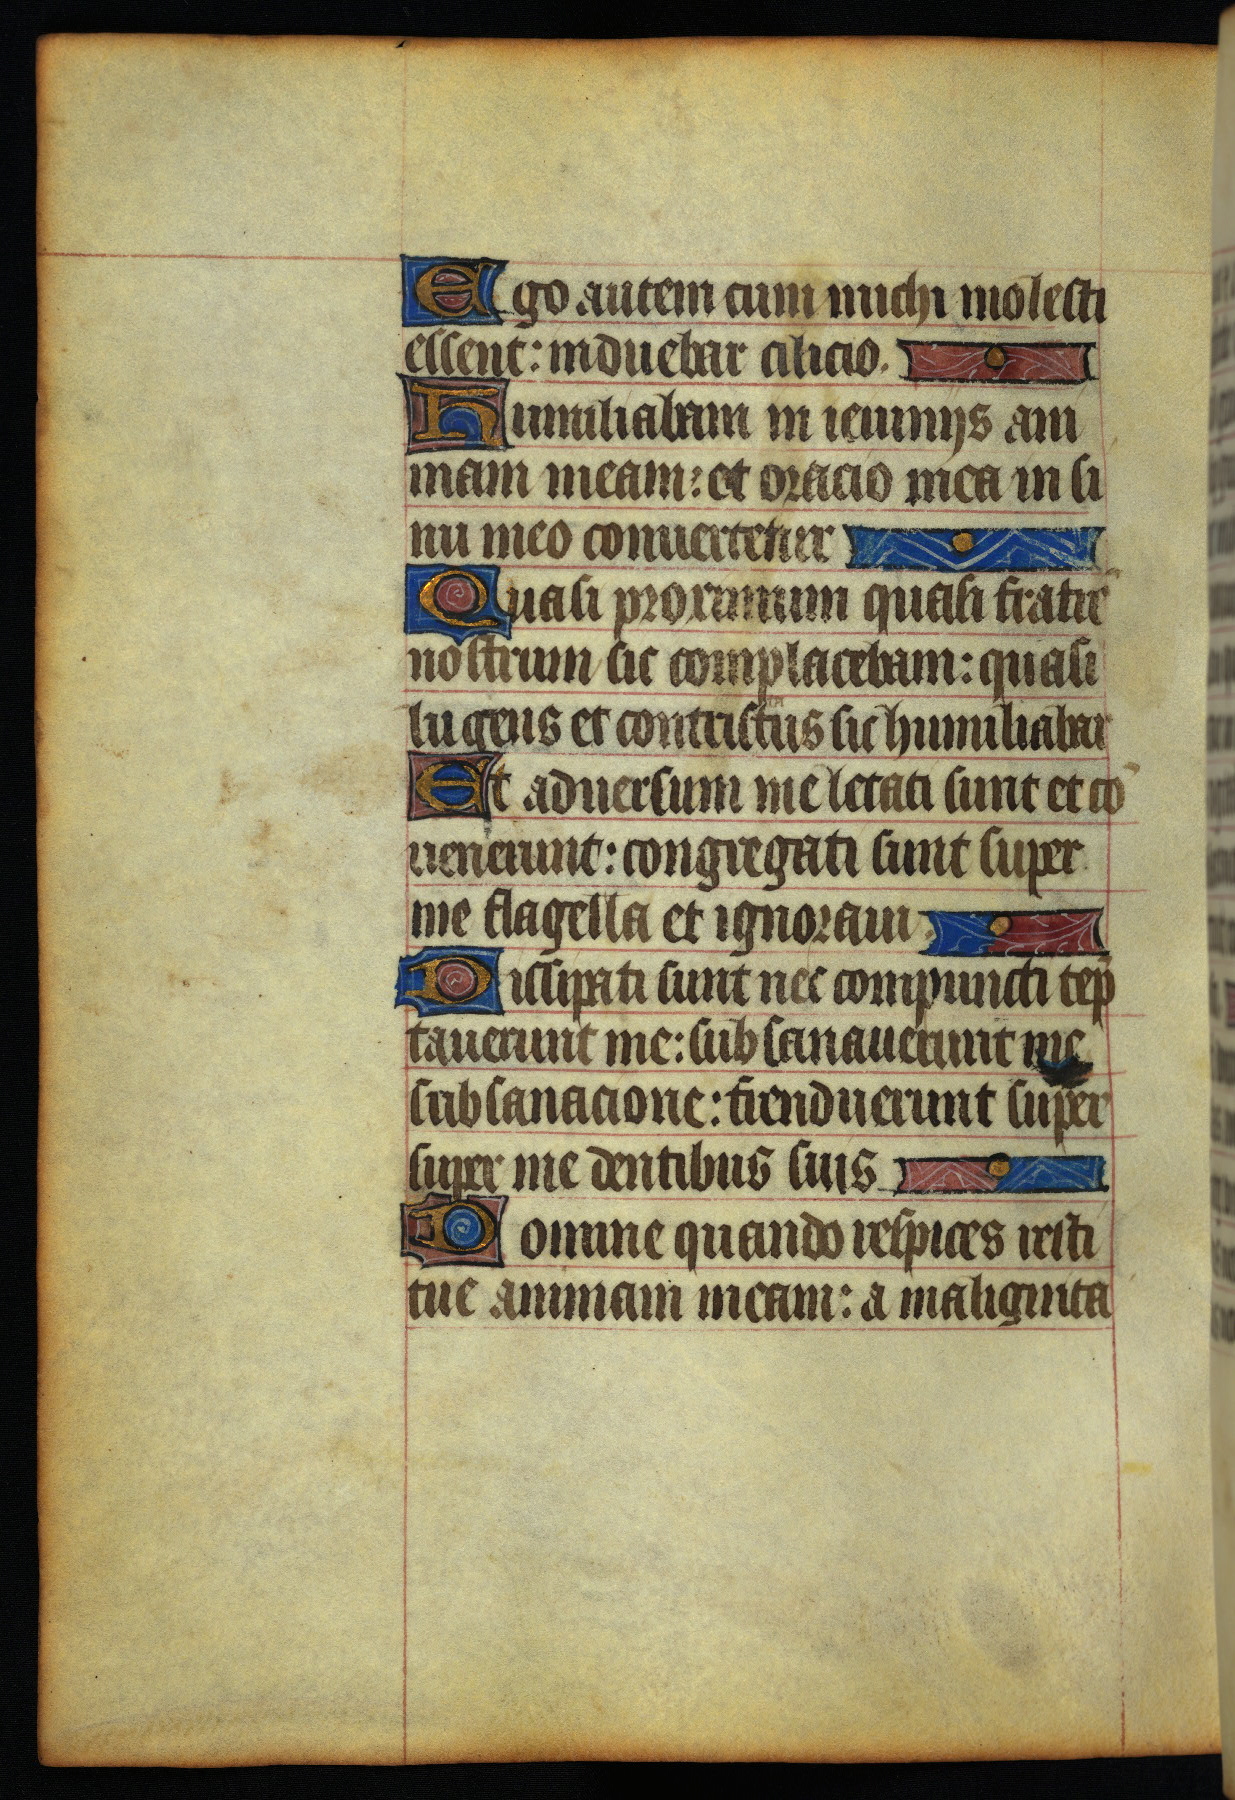 Ego autem cum michi molesti
essent: induebar cilicio.
Humiliabam in ieiunijs ani
mam meam: et oracio mea in si
nu meo conuertetur
Quasi proximum quasi fratrē
nostrum sic complacebam: quasi
lugens et contristatus sic humiliabar
Et aduersum me letati sunt et cō
uenerunt: congregati sunt super
me flagella et ignoraui.
Dissipati sunt nec compuncti tep̄
tauerunt me: subsanauerunt me
subsanacione: frenduerunt super
super me dentibus suis
Domine quando respices resti
tue animam meam: a malignita